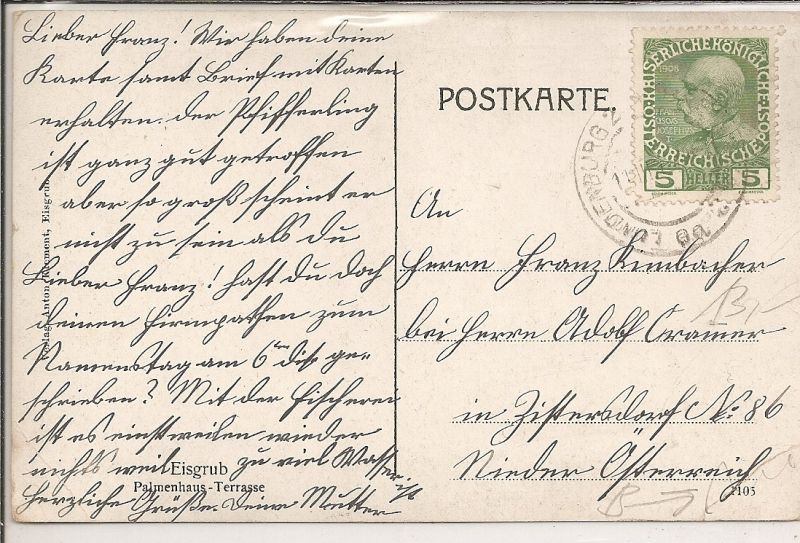 Lieber Franz! Wir haben deine
Karte samt Brief mit Karten
erhalten. der Pfifferling
ist ganz gut getroffen
aber so groß scheint er
nicht zu sein als du
Lieber Franz! hast du doch
deinen Firmpathen zum
Namenstag am 6ten dis. ge-
schrieben? Mit der Fischerei
ist es einstweilen wieder
nichts weil zu viel Wasser ist
herzliche Grüße. Deine Mutter
Verlag: Anton Regment, Eisgrub
Eisgrub
Palmenhaus-Terrasse
POSTKARTE.
KAISERLICHE KÖNIGLICHE
ÖSTERREICHISCHE
1908
5 HELLER 5
LUNDENBURG
An
Herrn Franz Kimbacher
bei Herrn Adolf Cramer
in Zistersdorf No. 86
Nieder Österreich
1105